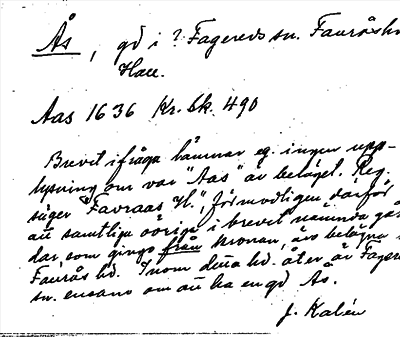 Ås, gd i ? Fagereds sn. Fauråshd
Hall.
Aas 1636 Kr. bk. 490
Brevet ifråga lämnar eg. ingen upp-
lysning om var "Aas" är beläget. Reg.
säger "Favraas H." förmodligen därför
att samtliga övriga i brevet nämnda går
dar, som givas från Kronan, äro belägna i
Faurås hd. Inom detta hd. åter är Fagere
sn. ensamt om att ha en gd Ås.
J. Kalén